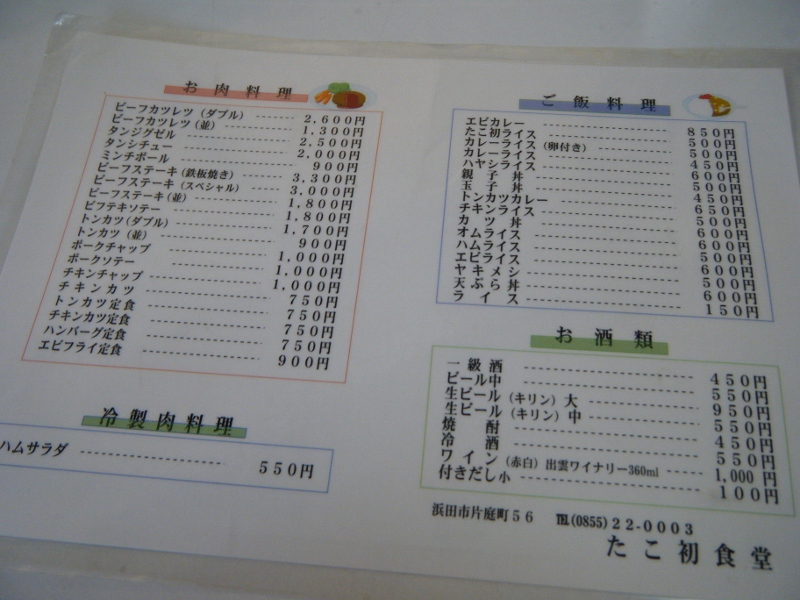 お肉料理
ビーフカツレツ（ダブル） 2,600円
ビーフカツレツ（並） 1,300円
タンジグゼル 2,500円
タンシチュー 2,000円
ミンチボール 900円
ビーフステーキ（鉄板焼き） 3,300円
ビーフステーキ（スペシャル） 3,000円
ビーフステーキ（並） 1,800円
ビフテキソテー 1,800円
トンカツ（ダブル） 1,700円
トンカツ（並） 900円
ポークチャップ 1,000円
ポークソテー 1,000円
チキンチャップ 1,000円
チキンカツ 750円
トンカツ定食 750円
チキンカツ定食 750円
ハンバーグ定食 750円
エビフライ定食 900円
冷製肉料理
ハムサラダ 550円
ご飯料理
エビカレー 850円
たこ初ライス 500円
カレーライス（卵付き） 500円
カレーライス 450円
ハヤシライス 600円
親子丼 500円
玉子丼 450円
トンカツカレー 650円
チキンライス 500円
カツ丼 600円
オムライス 600円
ハムライス 500円
エビライス 600円
ヤキメシ 500円
天ぷら丼 600円
ライス 150円
お酒類
一級酒 450円
ビール中 550円
生ビール（キリン）大 950円
生ビール（キリン）中 550円
焼酎 450円
冷酒 550円
ワイン（赤白）出雲ワイナリー360ml 1,000円
付きだし小 100円
浜田市片庭町56 ℡(0855)22-0003
たこ初食堂